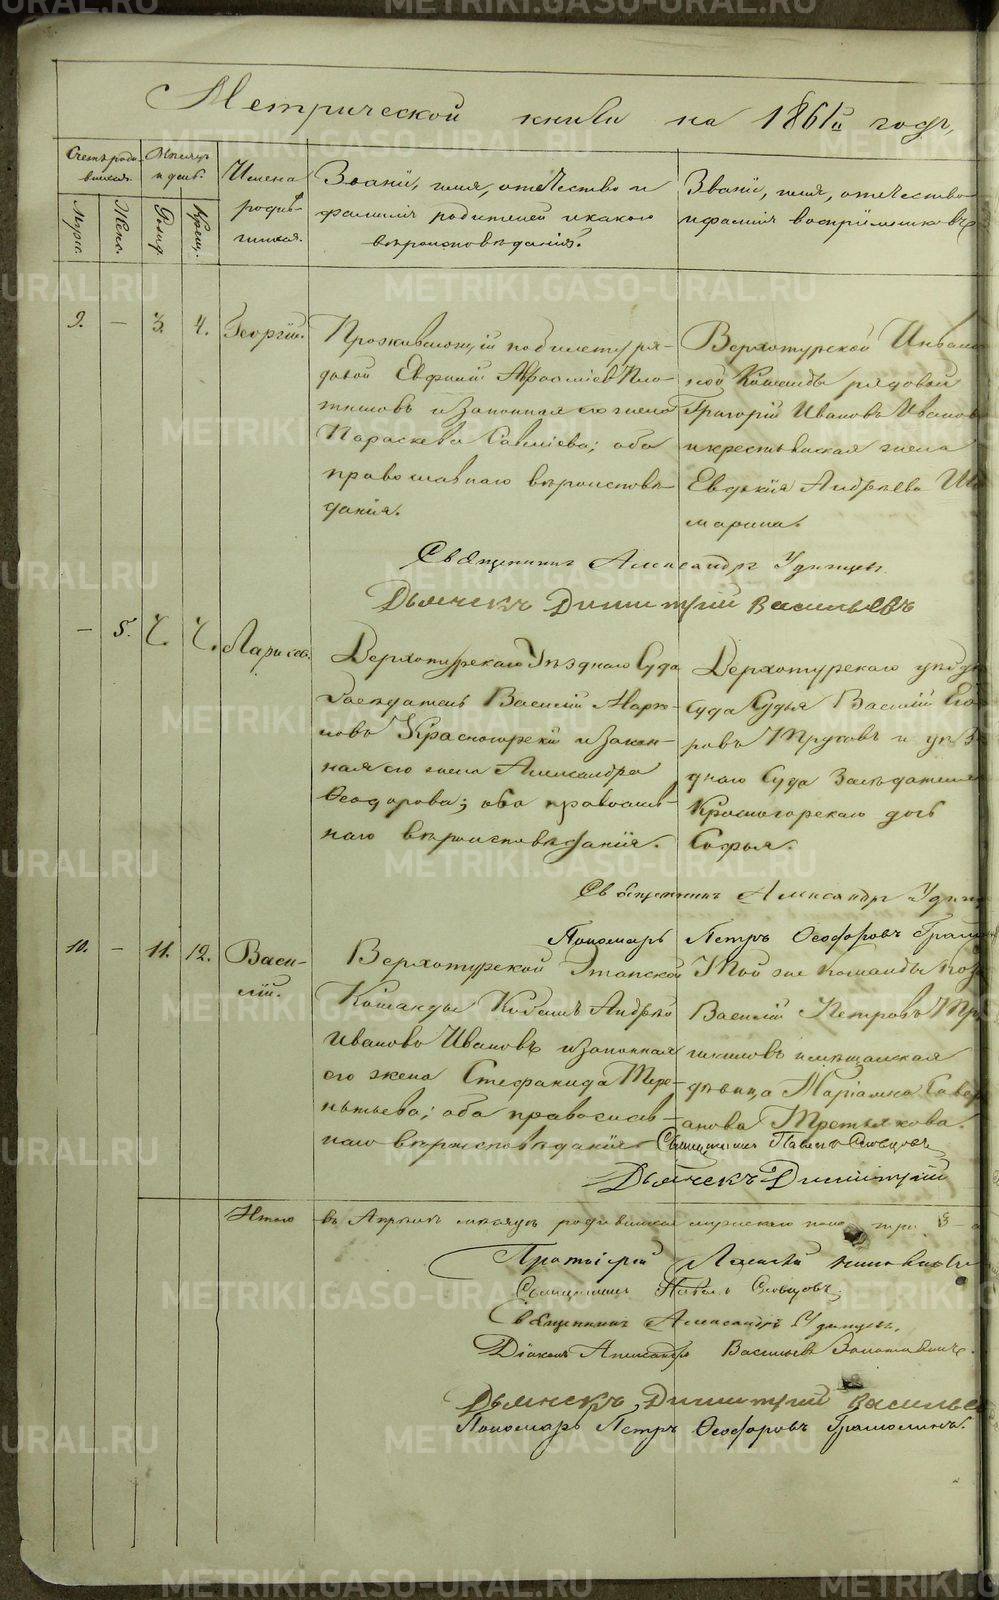 METRIKI.GASO-URAL.RU
Метрической книги на 1861й годъ,
Счетъ родившихся.
Мѣсяцъ и день.
Имена родившихся.
Званіе, имя, отечество и фамилія родителей и какого вѣроисповѣданія.
Званіе, имя, отечество и фамилія воспріемниковъ
Муж.
Жен.
Рожд.
Крещ.
9.
—
3.
4.
Георгій.
Проживающій по билету ря-
довой Евфимій
и законная его жена
Параскева Савлиева; оба
православнаго вѣроисповѣ-
данія.
Верхотурской Инвали
ной Команды рядовой
Григорій Ивановъ Иванов
и крестьянская жена
Евдокія Андреева
марина.
Священникъ Александръ Удинцевъ.
Дьячекъ Димитрій Васильевъ
—
5.
7.
7.
Лариса.
Верхотурскаго Уѣзднаго Суда
Засѣдатель Василій Марти-
новъ Красногорскій и закон-
ная его жена Александра
Ѳеодорова; оба православ-
наго вѣроисповѣданія.
Верхотурскаго уѣзд
Суда Судья Василій Его
ровъ Трутовъ и уѣз
днаго Суда Засѣдателя
Красногорскаго дочь
Софья.
Священникъ Александръ Удин
Пономарь Петръ Ѳеофоровъ Грам
10.
—
11.
12.
Васи-
лій.
Верхотурской Этапской
Команды Андрей
Ивановъ Ивановъ и законная
его жена Стефанида Тере-
нтьева; оба православ-
наго вѣроисповѣданія
Той же команды
Василій Петровъ
и мѣщанская
дѣвица Маріамна
Третьякова.
Священникъ Павелъ Словцовъ
Дьячекъ Димитрій
Итого
въ Апрѣлѣ мѣсяцѣ родившихся мужескаго пола три 3
Протоіерей
Священникъ Павелъ Словцовъ
Священникъ Александръ Удинцевъ.
Діаконъ Александръ Васильевъ
Дьячекъ Димитрій Василье
Пономарь Петръ Ѳеофоровъ Грамолинъ.